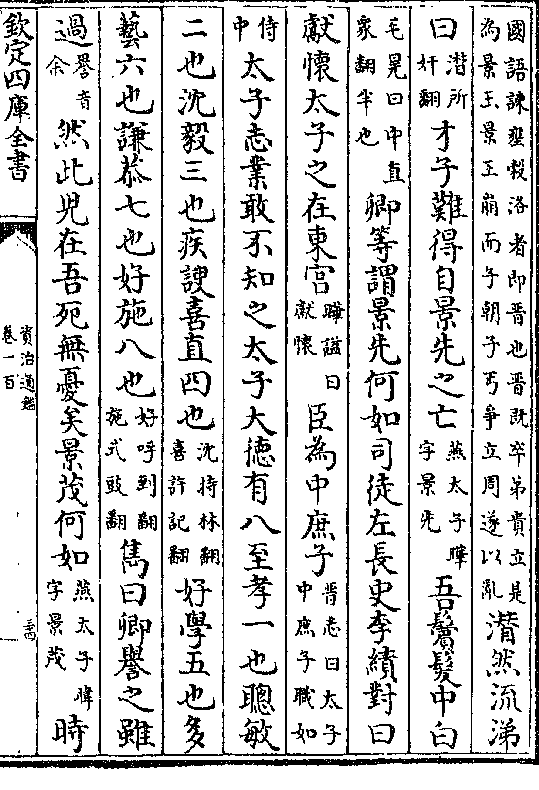 國語諫壅穀洛者即晉也晉既卒弟貴立是
為景王景王崩而子朝子丐爭立周遂以亂
潸然流涕
曰
潸所
奸翻
才子難得自景先之亡
燕太子曄
字景先
吾鬢髮中白
毛晃曰中直
衆翻半也
卿等謂景先何如司徒左長史李績對曰
獻懷太子之在東宮
曄諡曰
獻懷
臣為中庶子
晉志曰太子
中庶子職如
侍
中
太子志業敢不知之太子大德有八至孝一也聰敏
二也沈毅三也疾諛喜直四也
沈持林翻
喜許記翻
好學五也多
藝六也謙恭七也好施八也
好呼到翻
施式豉翻
雋曰卿譽之雖
過
譽音
余
然此兒在吾死無憂矣景茂何如
燕太子暐
字景茂
時
欽定四庫全書
資治通鑑
卷一百
三十四